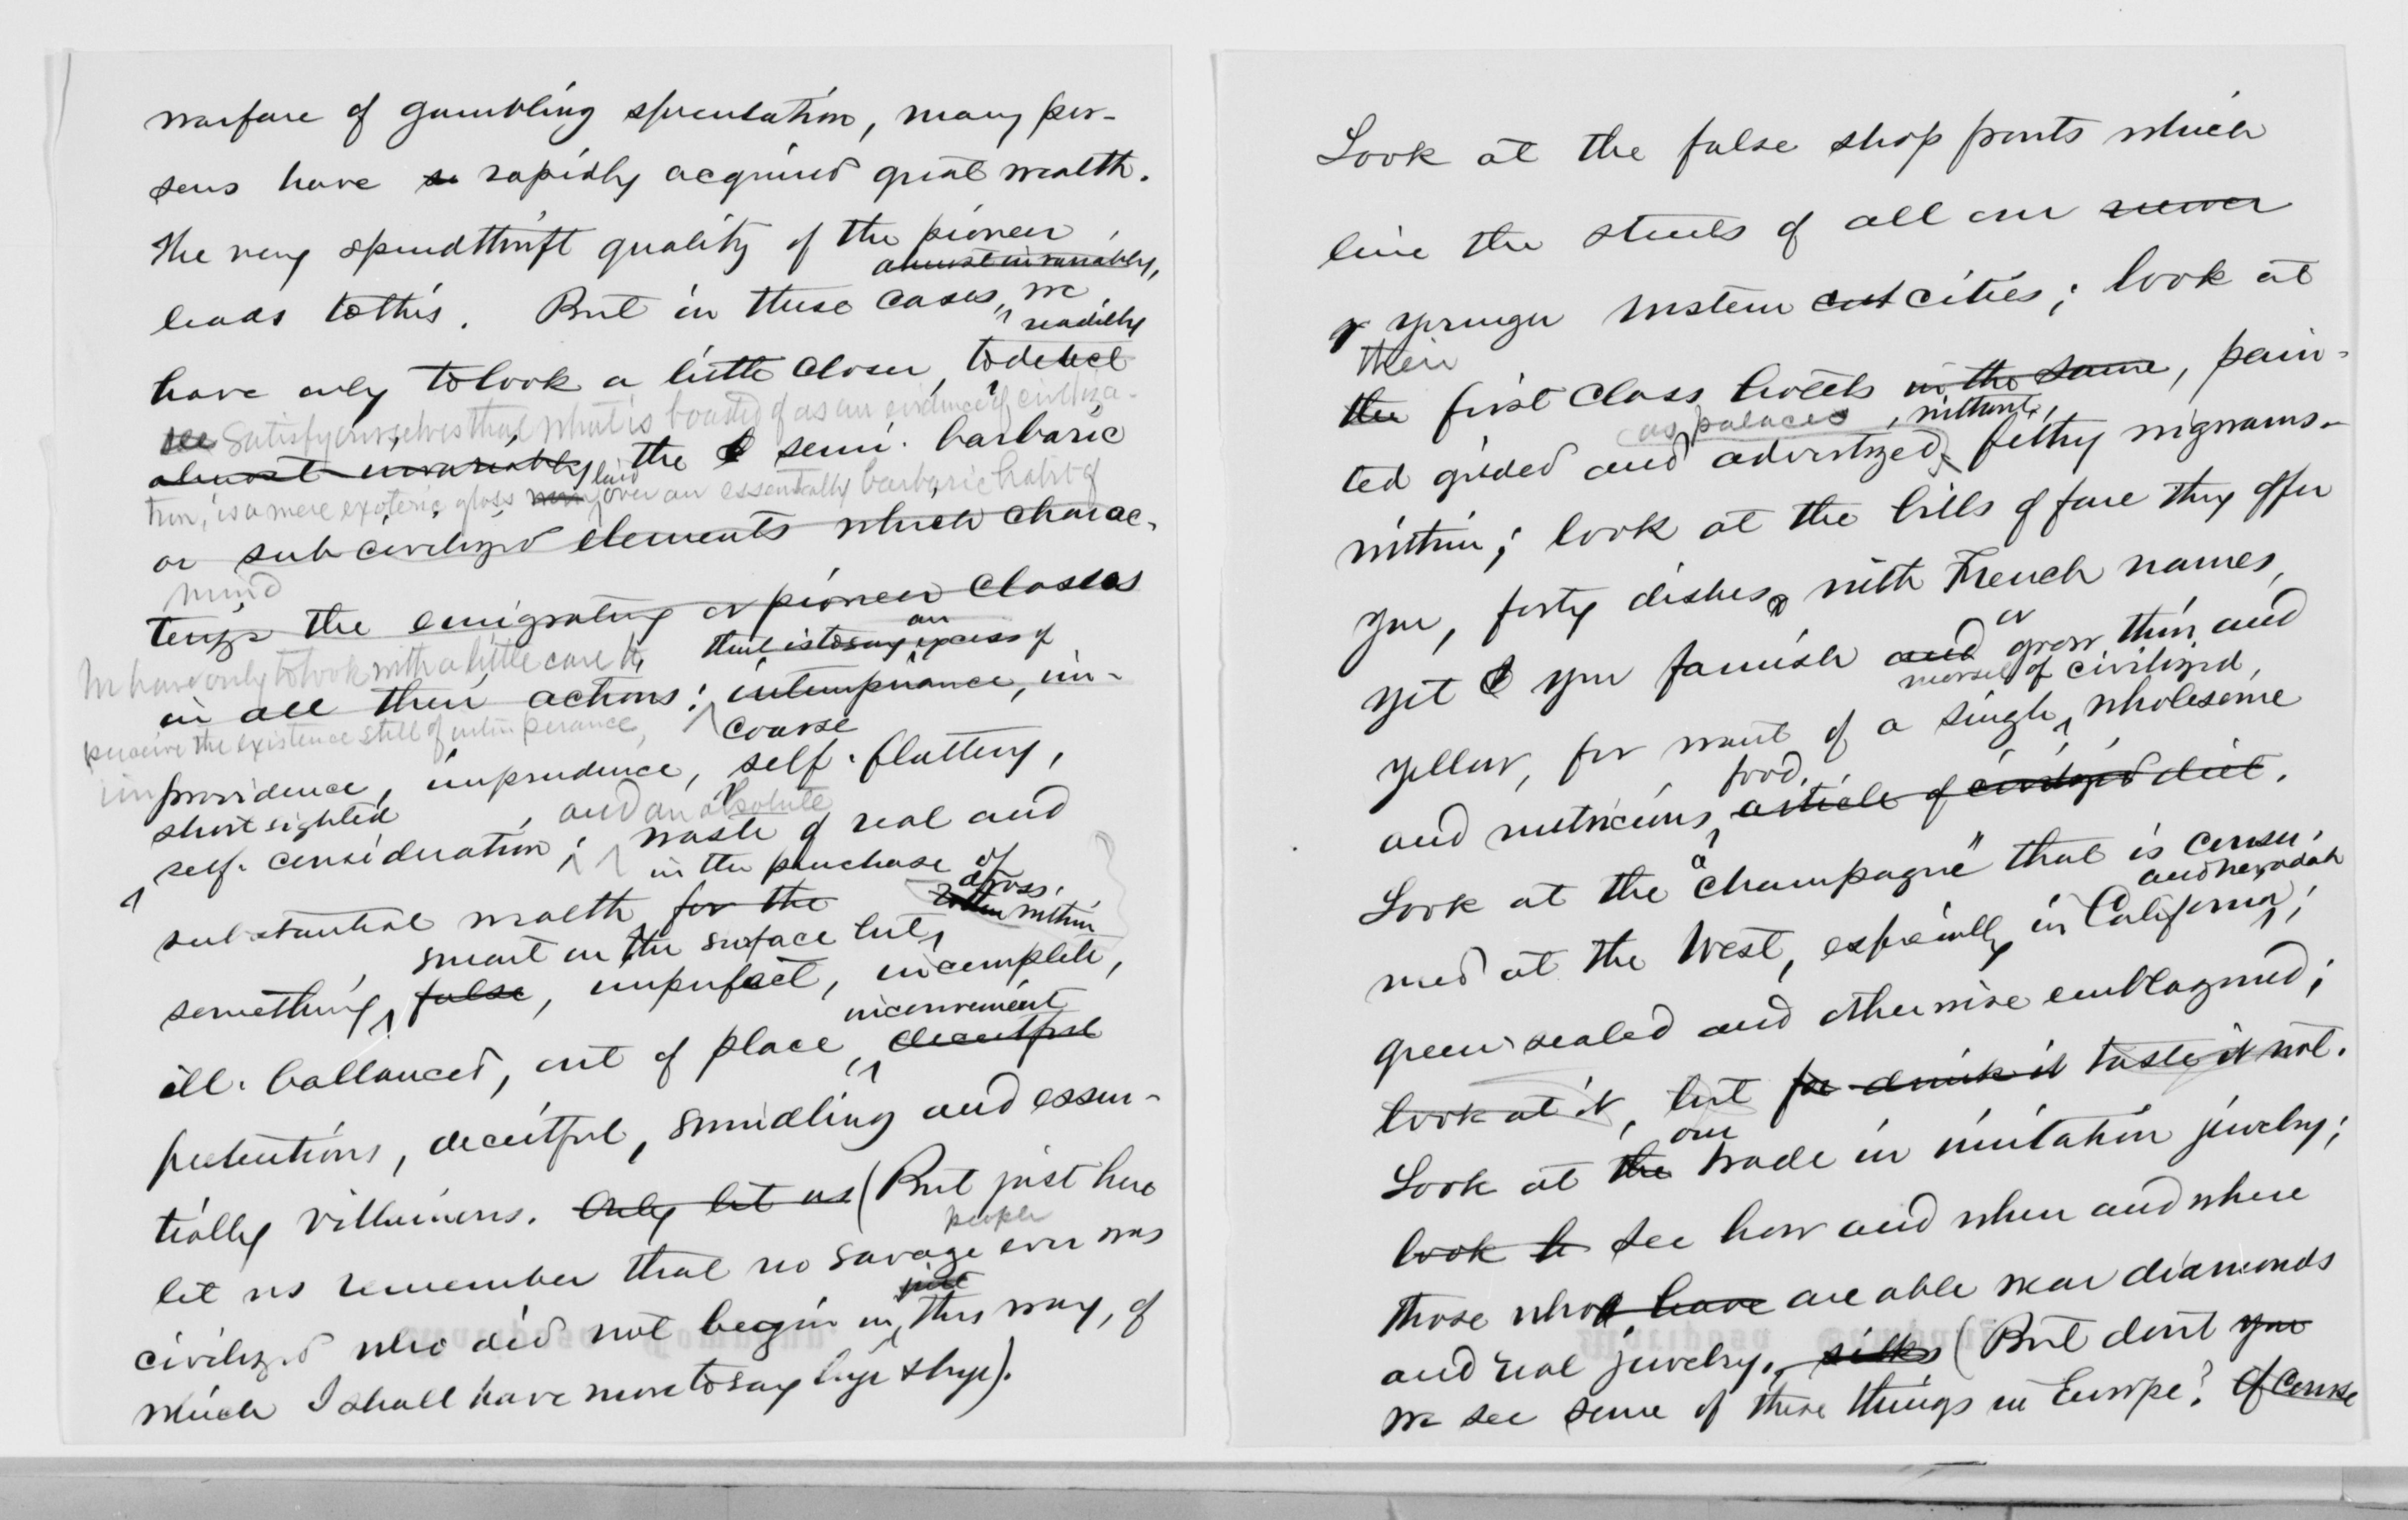 warfare of gambling speculation, many per-
sons have so rapidly acquired great wealth.
The very spendthrift quality of the pioneer
almost invariably,
leads to this. But in these cases, we
readilly
have only to look a little closer, to detect
see satisfy ourselves that what is boasted of as an evidence of civiliza-
almost invariably the semi-barbaric
laid
tion, is a mere exoteric gloss over an essentially barbaric habit of
or sub-civilized elements which charac-
mind
terize the emigrating or pioneer classes
an
We have only to look with a little care to that is to say excess of
in all their actions: intemperance, im-
perceive the existence still of intemperance, coarse
improvidence, imprudence, self-flattery,
short sighted , and an absolute
self-consideration; waste of real and
in the purchase of
dross,
substantial wealth for the rotten within
smart on the surface but,
something, false, imperfect, incomplete,
inconvenient
ill-ballanced, out of place, deceitful
pretentious, deceitful, swindling and essen-
tially villainous. Only let us (But just here
people
let us remember that no savage ever was
just
civilized who did not begin in this way, of
which I shall have more to say bye & bye).
Look at the false shop fronts which
line the streets of all our newer
or younger western cities; look at
their
the first class hotels in the same, pain-
as palaces , without,
ted gilded and advertized, filthy wigwams
within; look at the bills of fare they offer
you, forty dishes, with French names,
or
yet you famish and grow thin and
morsel of civilized,
yellow, for want of a single, wholesome
food.
and nutricious article of civilized diet.
Look at the "champagne" that is consu-
and nevadah
med at the West, especially in California;
green-sealed and otherwise emblazoned;
look at it, but for drink it taste it not.
our
Look at the trade in imitation jewelry;
look to see how and when and where
those who have are able wear diamonds
and real jewelry, silks (But dont you
we see some of these things in Europe? Of course